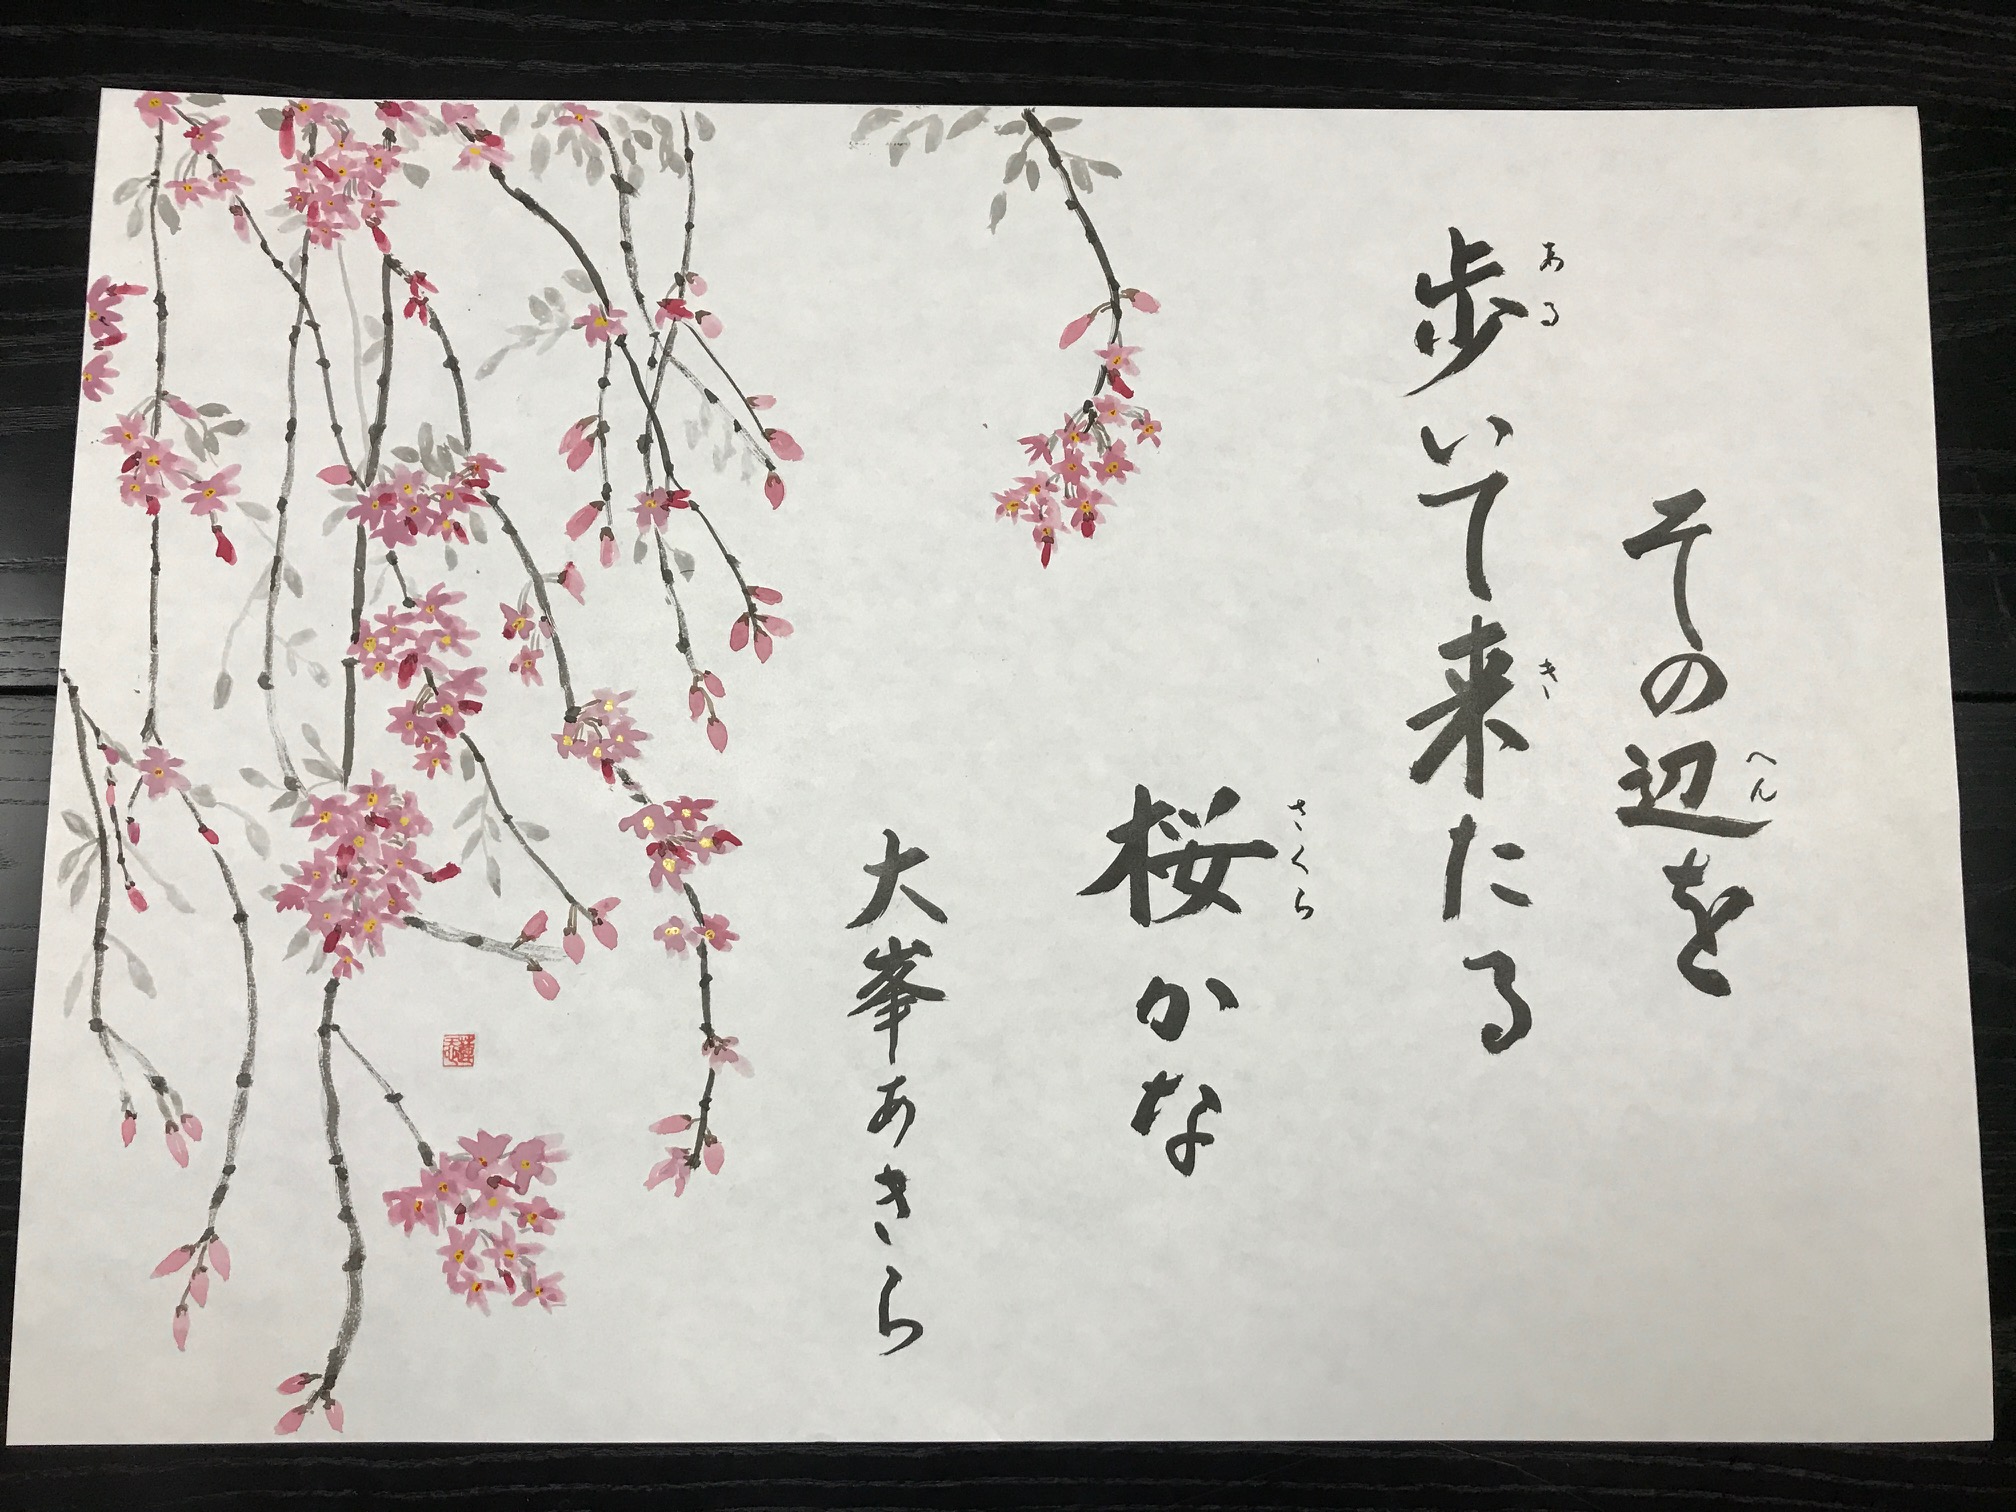 その辺を
へん
歩いて来たる
ある
き
桜かな
さくら
大峯あきら